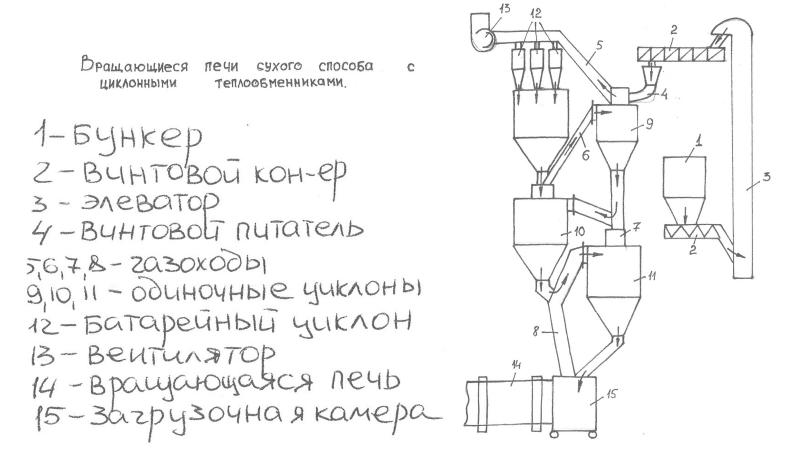 Вращающиеся печи сухого способа с
циклонными теплообменниками.
1-Бункер
2-Винтовой кон-ер
3-элеватор
4-Винтовой питатель
5,6,7,8-газоходы
9,10,11-одиночные циклоны
12-Батарейный циклон
13-вентилятор
14-вращающаяся печь
15-Загрузочная камера
13
12
2
5
4
9
6
1
3
10
7
2
11
8
14
15